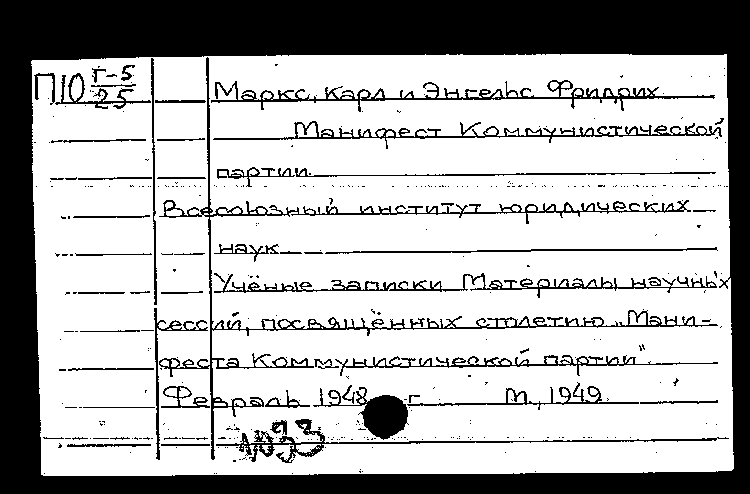 П10 Г-5/25
Маркс, Карл и Энгельс Фридрих
Манифест Коммунистической
партии.
Всесоюзный институт юридических
наук
Учёные записки Материалы научных
сессий, посвящённых столетию „Мани-
феста Коммунистической партии"
Февраль 1948 г М., 1949.
1033